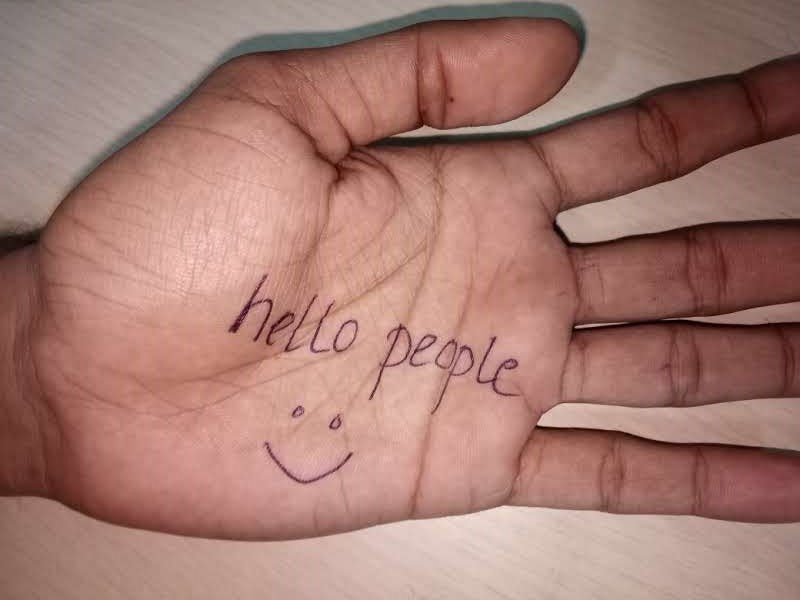 hello people